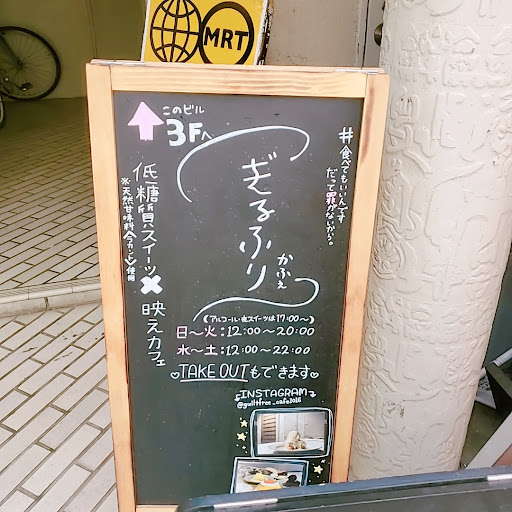 MRT
このビル
3Fへ
#食べてもいいんです
だって罪がないから。
ぎるふり
かふぇ
低糖質スイーツ×映えカフェ
※天然甘味料使用
(アルコール・夜スイーツは17:00〜)
日〜火:12:00〜20:00
水〜土:12:00〜22:00
♡TAKE OUTもできます♡
INSTAGRAM
@guiltfree_cafe2016